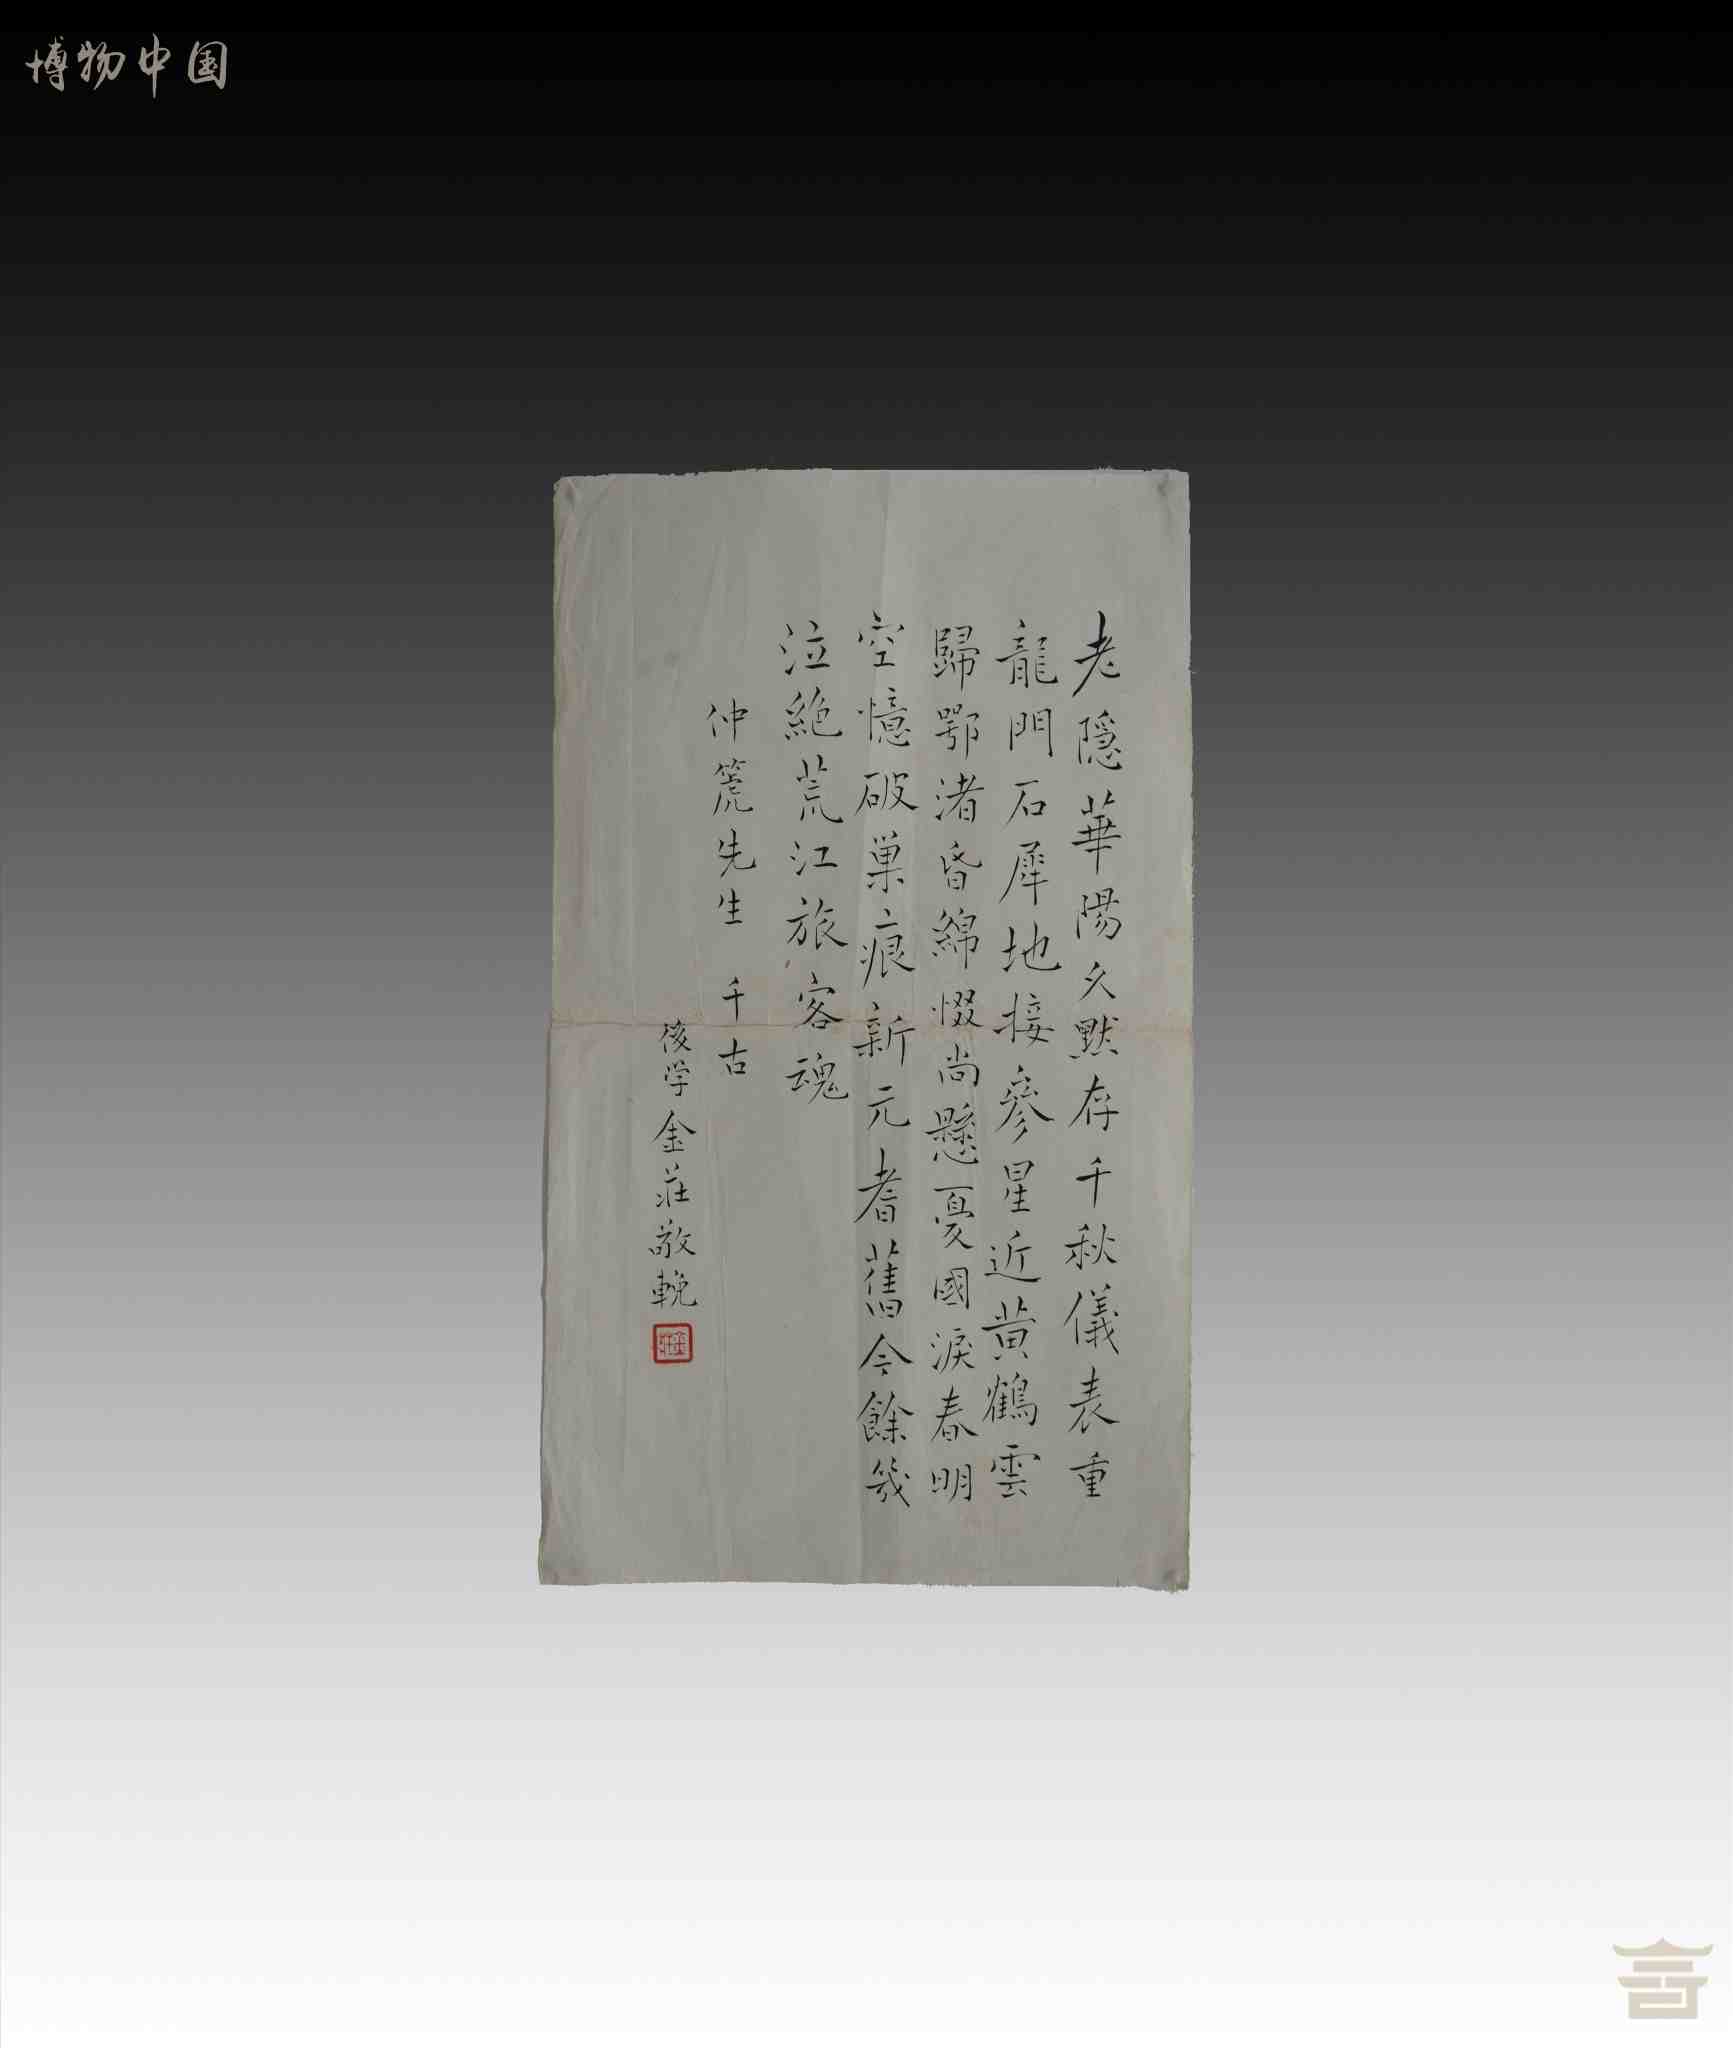 博物中国
老隱華陽久默存千秋儀表重
龍門石犀地接參星近黃鶴雲
歸鄂渚昏綿惙尚懸憂國淚春明
空憶破巢痕新元耆舊今餘幾
泣絶荒江旅客魂
仲箎先生 千古
後学金莊敬輓
金莊